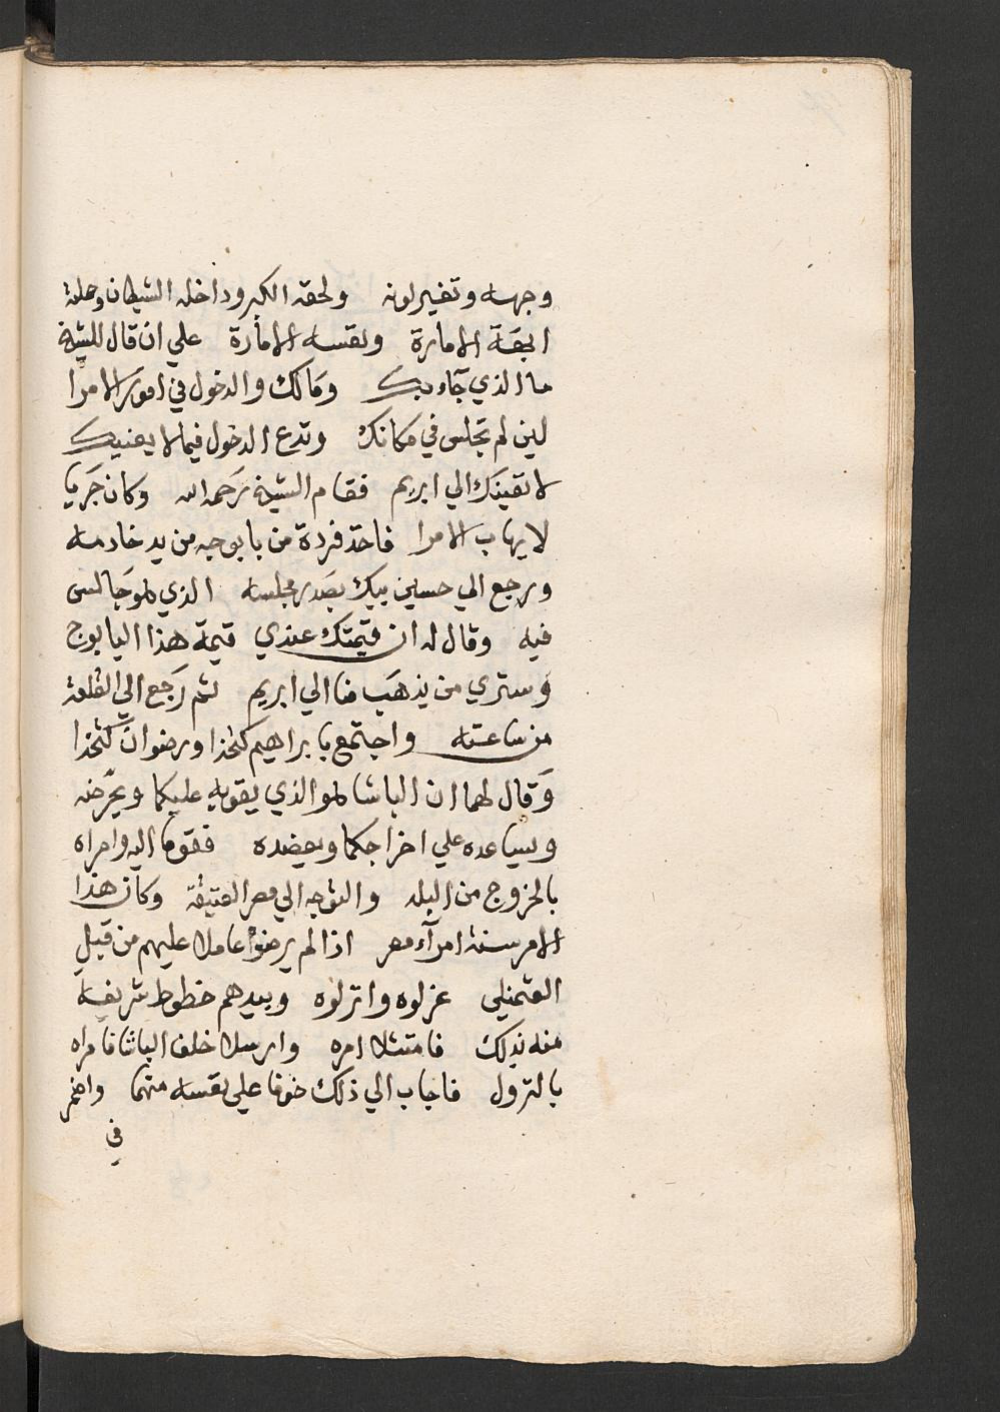 وجهه وتغير لونه ولحقه الكبر وداخله الشيطان وحمله
ابهة الامارة ونفسه الامارة علي ان قال للشيخ
ما الذي جآء بك ومالك والدخول في امور الامرا
لين لم تجلس في مكانك وتدع الدخول فيما لا يعنيك
لانفينك الي ابريم فقام الشيخ رحمه الله وكان جريا
لا يهاب الامرا فاخذ فردة من بابوجه من يد خادمه
ورجع الي حسين بيك بصدر مجلسه الذي هو جالس
فيه وقال له ان قيمتك عندي قيمة هذا البابوج
وستري من يذهب منا الي ابريم ثم رجع الي القلعة
من ساعته واجتمع بابراهيم كتخدا ورضوان كتخدا
وقال لهما ان الباشا هو الذي يقويه عليكما ويحرضه
ويساعده علي اخراجكما ويعضده فقوما اليه وامراه
بالخروج من البلد والتوجه الي مصر العتيقة وكان هذا
الامر سنة امرآء مصر اذا لم يرضوا عاملا عليهم من قبل
العثمنلي عزلوه وانزلوه وبيدهم خطوط شريفة
منه بذلك فامتثلا امره وارسلا خلف الباشا فامراه
بالنزول فاجاب الي ذلك خوفا علي نفسه منهما واضمر
في